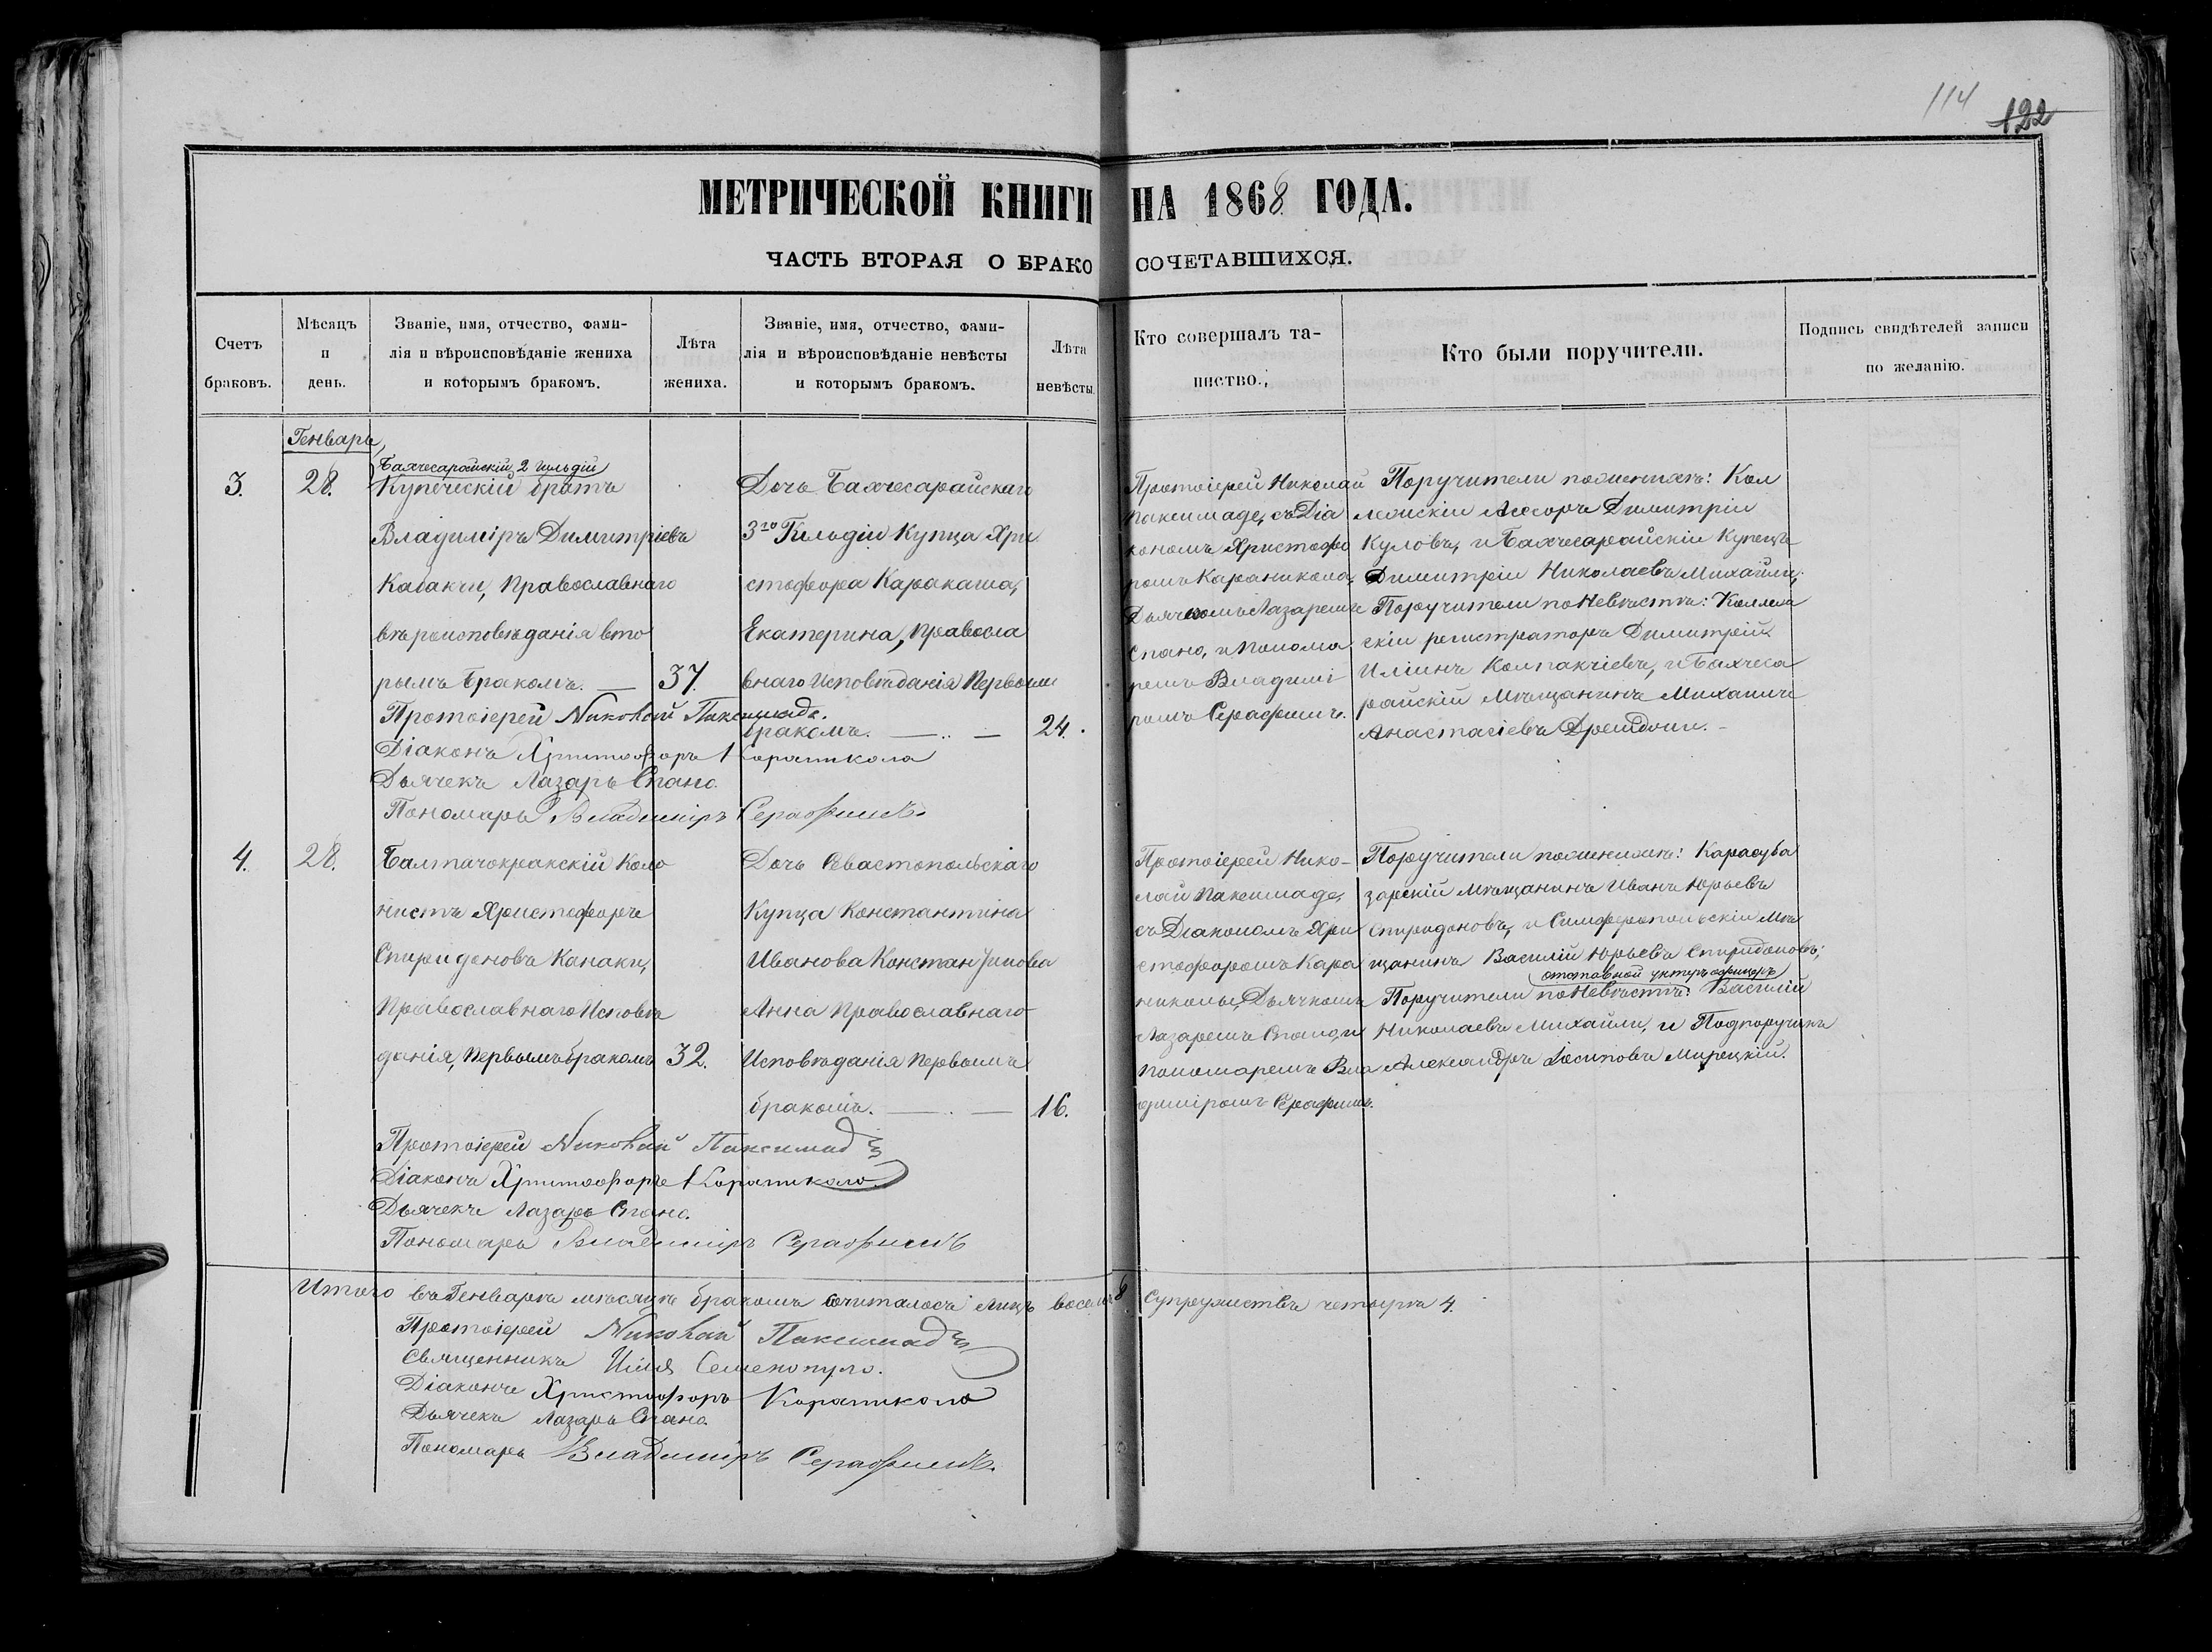 114 122
МЕТРИЧЕСКОЙ КНИГИ НА 1868 ГОДА.
ЧАСТЬ ВТОРАЯ О БРАКОСОЧЕТАВШИХСЯ.
Счетъ браковъ.
Мѣсяцъ и день.
Званіе, имя, отчество, фами-
лія и вѣроисповѣданіе жениха
и которымъ бракомъ.
Лѣта жениха.
Званіе, имя, отчество, фами-
лія и вѣроисповѣданіе невѣсты
и которымъ бракомъ.
Лѣта невѣсты.
Кто совершалъ та-
инство.
Кто были поручители.
Подпись свидѣтелей записи
по желанію.
Генварь,
3.
28.
Бахчесарайскій 2 гильдіи
Купеческій братъ
Владиміръ Димитріевъ
Казакчи, Православнаго
вѣроисповѣданія вто
рымъ бракомъ. — 37.
Дочь Бахчесарайскаго
3го Гильдіи Купца Хри
стофора Каракаша,
Екатерина, Правосла
внаго Исповѣданія Первымъ
бракомъ. — 24.
Протоіерей Николай
Паксимаде, съ Діа
кономъ Христофо
ромъ Караникола,
Дьячкомъ Лазаремъ
Спано, и Понома
ремъ Владимі
ромъ Серафимъ.
Поручители по женихѣ: Кол
лежскій Асесоръ Димитрій
Куловъ, и Бахчесарайскій Купецъ
Димитрій Николаевъ Михайли;
Поручители по Невѣстѣ: Коллеж
скій регистраторъ Димитрій
Иліинъ Колпакчіевъ, и Бахчеса
райскій Мѣщанинъ Михаилъ
Анастасіевъ
Протоіерей Николай Паксимаде.
Діаконъ Христофоръ Караникола
Дьячекъ Лазарь Спано.
Пономарь Владиміръ Серафимъ.
4.
28.
Балтачокракскій Коло
нистъ Христофоръ
Спиридоновъ Канаки,
Православнаго Исповѣ
данія, Первымъ бракомъ 32.
Дочь Севастопольскаго
Купца Константина
Иванова Константинова
Анна Православнаго
Исповѣданія Первымъ
бракомъ. — 16.
Протоіерей Нико-
лай Паксимаде,
съ Діакономъ Хри
стофоромъ Кара
николы, Дьячкомъ
Лазаремъ Спано, и
Пономаремъ Вла
диміромъ Серафимъ.
Поручители по женихѣ: Карасуба
зарскій Мѣщанинъ Иванъ Юрьевъ
Спиридоновъ, и Симферопольскій Мѣ
щанинъ Василій Юрьевъ Спиридоновъ;
отставной унтеръ офицеръ
Поручители по Невѣстѣ: Василій
Николаевъ Михайли, и Подпоручикъ
Александръ Іосиповъ Мирецкій.
Протоіерей Николай Паксимаде
Діаконъ Христофоръ Караникола
Дьячекъ Лазарь Спано.
Пономарь Владиміръ Серафимъ
Итого въ Генварѣ мѣсяцѣ бракомъ сочиталось лицъ восемь 8 Супружествъ четыре 4.
Протоіерей Николай Паксимаде
Священникъ Илія Семенопуло.
Діаконъ Христофоръ Караникола
Дьячекъ Лазарь Спано.
Пономарь Владиміръ Серафимъ.